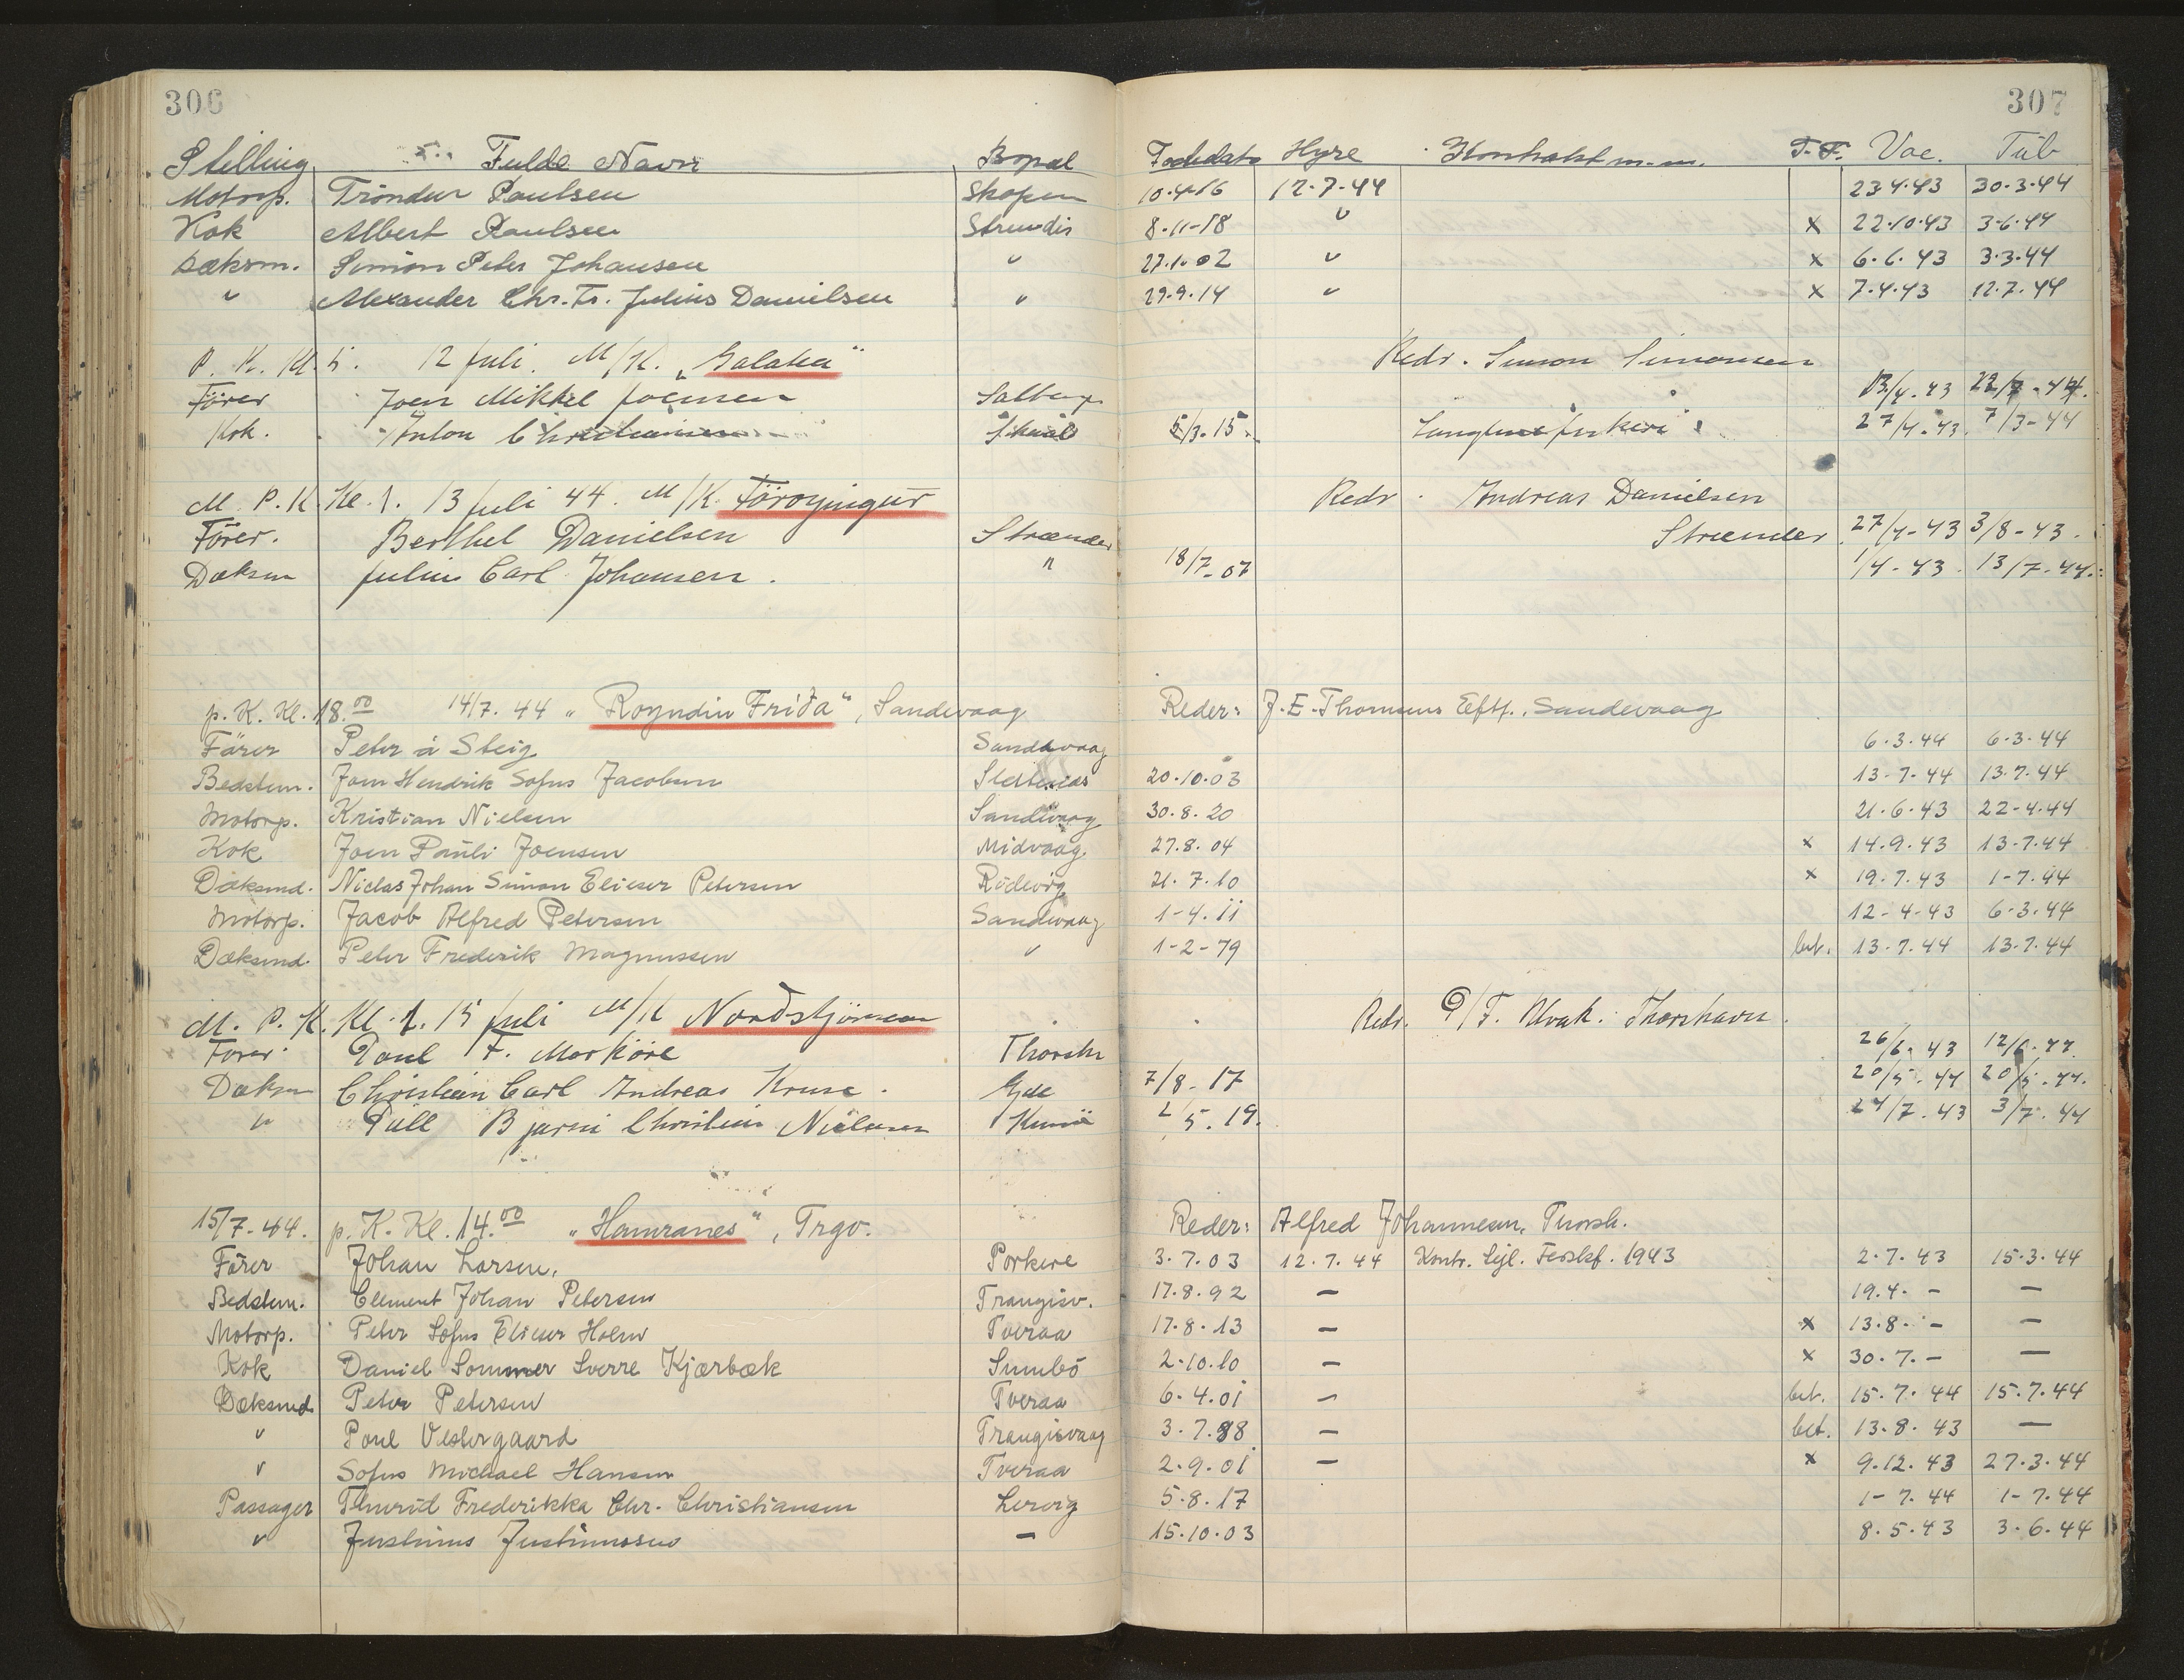 306 307
Stilling Fulde Navn Bopæl Födedato Hyre Kontrakt m.m. T.F. Vac. Tüb
Motorp. Tróndur Paulsen Skopun 10.4.16 12.7.44 23.4.43 30.3.44
Kok Albert Paulsen Strendir 8-11-18 " x 22.10.43 3.6.44
Dæksm. Simon Peter Johansen " 27.1.02 " x 6.6.43 3.3.44
" Alexander Chr. Fr. Julius Danielsen " 29.9.14 " x 7.4.43 12.7.44
P. K. Kl. 5. 12 juli. M/K. „Galatea" Redr. Simon Simonsen
Förer Joen Mikkel Joensen 13/4.43
Kok. Anton Skaale 5/3.15. 27/4.43. 7/3-44
M. P. K. Kl. 1. 13 juli 44. M/K. Föroyingur Redr. Andreas Danielsen
Förer. Berthel Danielsen Strænder Strænder 27/4-43 3/8-43.
Dæksm Julius Carl Johansen. " 18/7-07 1/4-43. 13/7-44.
p. K. Kl. 18.00 14/7.44 „Royndin Friða", Sandevaag Reder: J. E. Thomsens Eftf., Sandevaag
Förer Peter á Steig Sandevaag 6.3.44 6.3.44
Bedstem. Joen Hendrik Sofus Jacobsen 20.10.03 13-7-44 13.7.44
Motorp. Kristian Nielsen Sandevaag 30.8.20 21.6.43 22-4.44
Kok Joen Pauli Joensen Midvaag. 27.8.04 x 14.9.43 13-7.44
Dæksmd. Niclas Johan Simon Elieser Petersen 21.7.10 x 19.7.43 1-7.44
Motorp. Jacob Alfred Petersen Sandevaag 1-4.11 12-4-43 6-3.44
Dæksmd. Peter Frederik Magnussen " 1-2-79 bet. 13-7.44 13.7.44
M. P. K. Kl. 1. 15 juli M/K Nordstjörnan Redr. P/F. Thorshavn.
Förer Poul F. Morköre Thorsh 26/6.43 12/6.44.
Dæksm Christian Carl Andreas Kruse. Gde 7/8-17 20/5.44 20/5.44.
" Páll Bjarni Christian Nielsen 2/5.19. 24/7.43 3/7.44
15/7-44. p. K. Kl. 14.00 „Hamranes", Trgv. Reder: Alfred Johannesen, Thorsh.
Förer Johan Larsen, Porkere 3.7.03 12.7.44 Kontr. Sejl. Ferskf. 1943 2.7.43 15.3.44
Bedstem. Clement Johan Petersen Trangisv. 17.8.92 — 19.4. - —
Motorp. Peter Sofus Elieser Holm Tveraa 17.8.13 — x 13.8. - —
Kok Daniel Sommer Sverre Kjærbæk Sumbö 2.10.10 — x 30.7. - —
Dæksmd. Peter Petersen Tveraa 6.4.01 — bet. 15.7.44 15.7.44
" Poul Vestergaard Trangisvaag 3.7.88 — bet. 13.8.43 —
" Sofus Michael Hansen Tveraa 2.9.01 — x 9.12.43 27.3.44
Passager Thurid Frederikka Chr. Christiansen Lervig 5.8.17 1-7.44 1-7.44
" Justinus Justinussen — 15.10.03 8.5.43 3.6.44